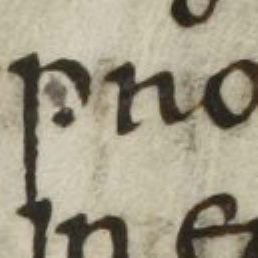 pno
in e